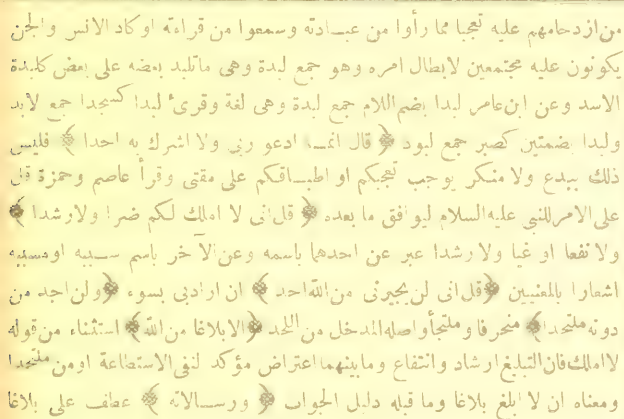 من ازدحامهم عليه تعجبا مما رأوا من عبادته وسمعوا من قراءته او كاد الانس والجن
يكونون عليه مجتمعين لابطال امره وهو جمع لبدة وهى ماتلبد بعضه على بعض كلبدة
الاسد وعن ابن عامر لبدا بضم اللام جمع لبدة وهى لغة وقرئ لبدا كسجدا جمع لابد
ولبدا بضمتين كصبر جمع لبود ﴿ قال انما ادعو ربى ولا اشرك به احدا ﴾ فليس
ذلك ببدع ولا منكر يوجب تعجبكم او اطباقكم على مقتى وقرأ عاصم وحمزة قل
على الامر للنبى عليه السلام ليوافق ما بعده ﴿ قل انى لا املك لكم ضرا ولا رشدا ﴾
ولا نفعا او غيا ولا رشدا عبر عن احدهما باسمه وعن الآخر باسم سببه او مسببه
اشعارا بالمعنيين ﴿ قل انى لن يجيرنى من الله احد ﴾ ان ارادنى بسوء ﴿ ولن اجد من
دونه ملتحدا ﴾ منحرفا وملتجأ واصله المدخل من اللحد ﴿ الا بلاغا من الله ﴾ استثناء من قوله
لا املك فان التبليغ ارشاد وانتفاع وما بينهما اعتراض مؤكد لنفى الاستطاعة او من ملتحدا
ومعناه ان لا ابلغ بلاغا وما قبله دليل الجواب ﴿ ورسالاته ﴾ عطف على بلاغا